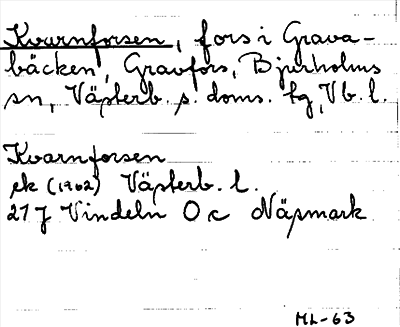 Kvarnforsen, fors i Grava-
bäcken, Gravfors, Bjurholms
sn, Västerb. s. doms. tg, Vb. l.
Kvarnforsen
ek (1962) Västerb. l.
21 J Vindeln O c Näsmark
ML-63